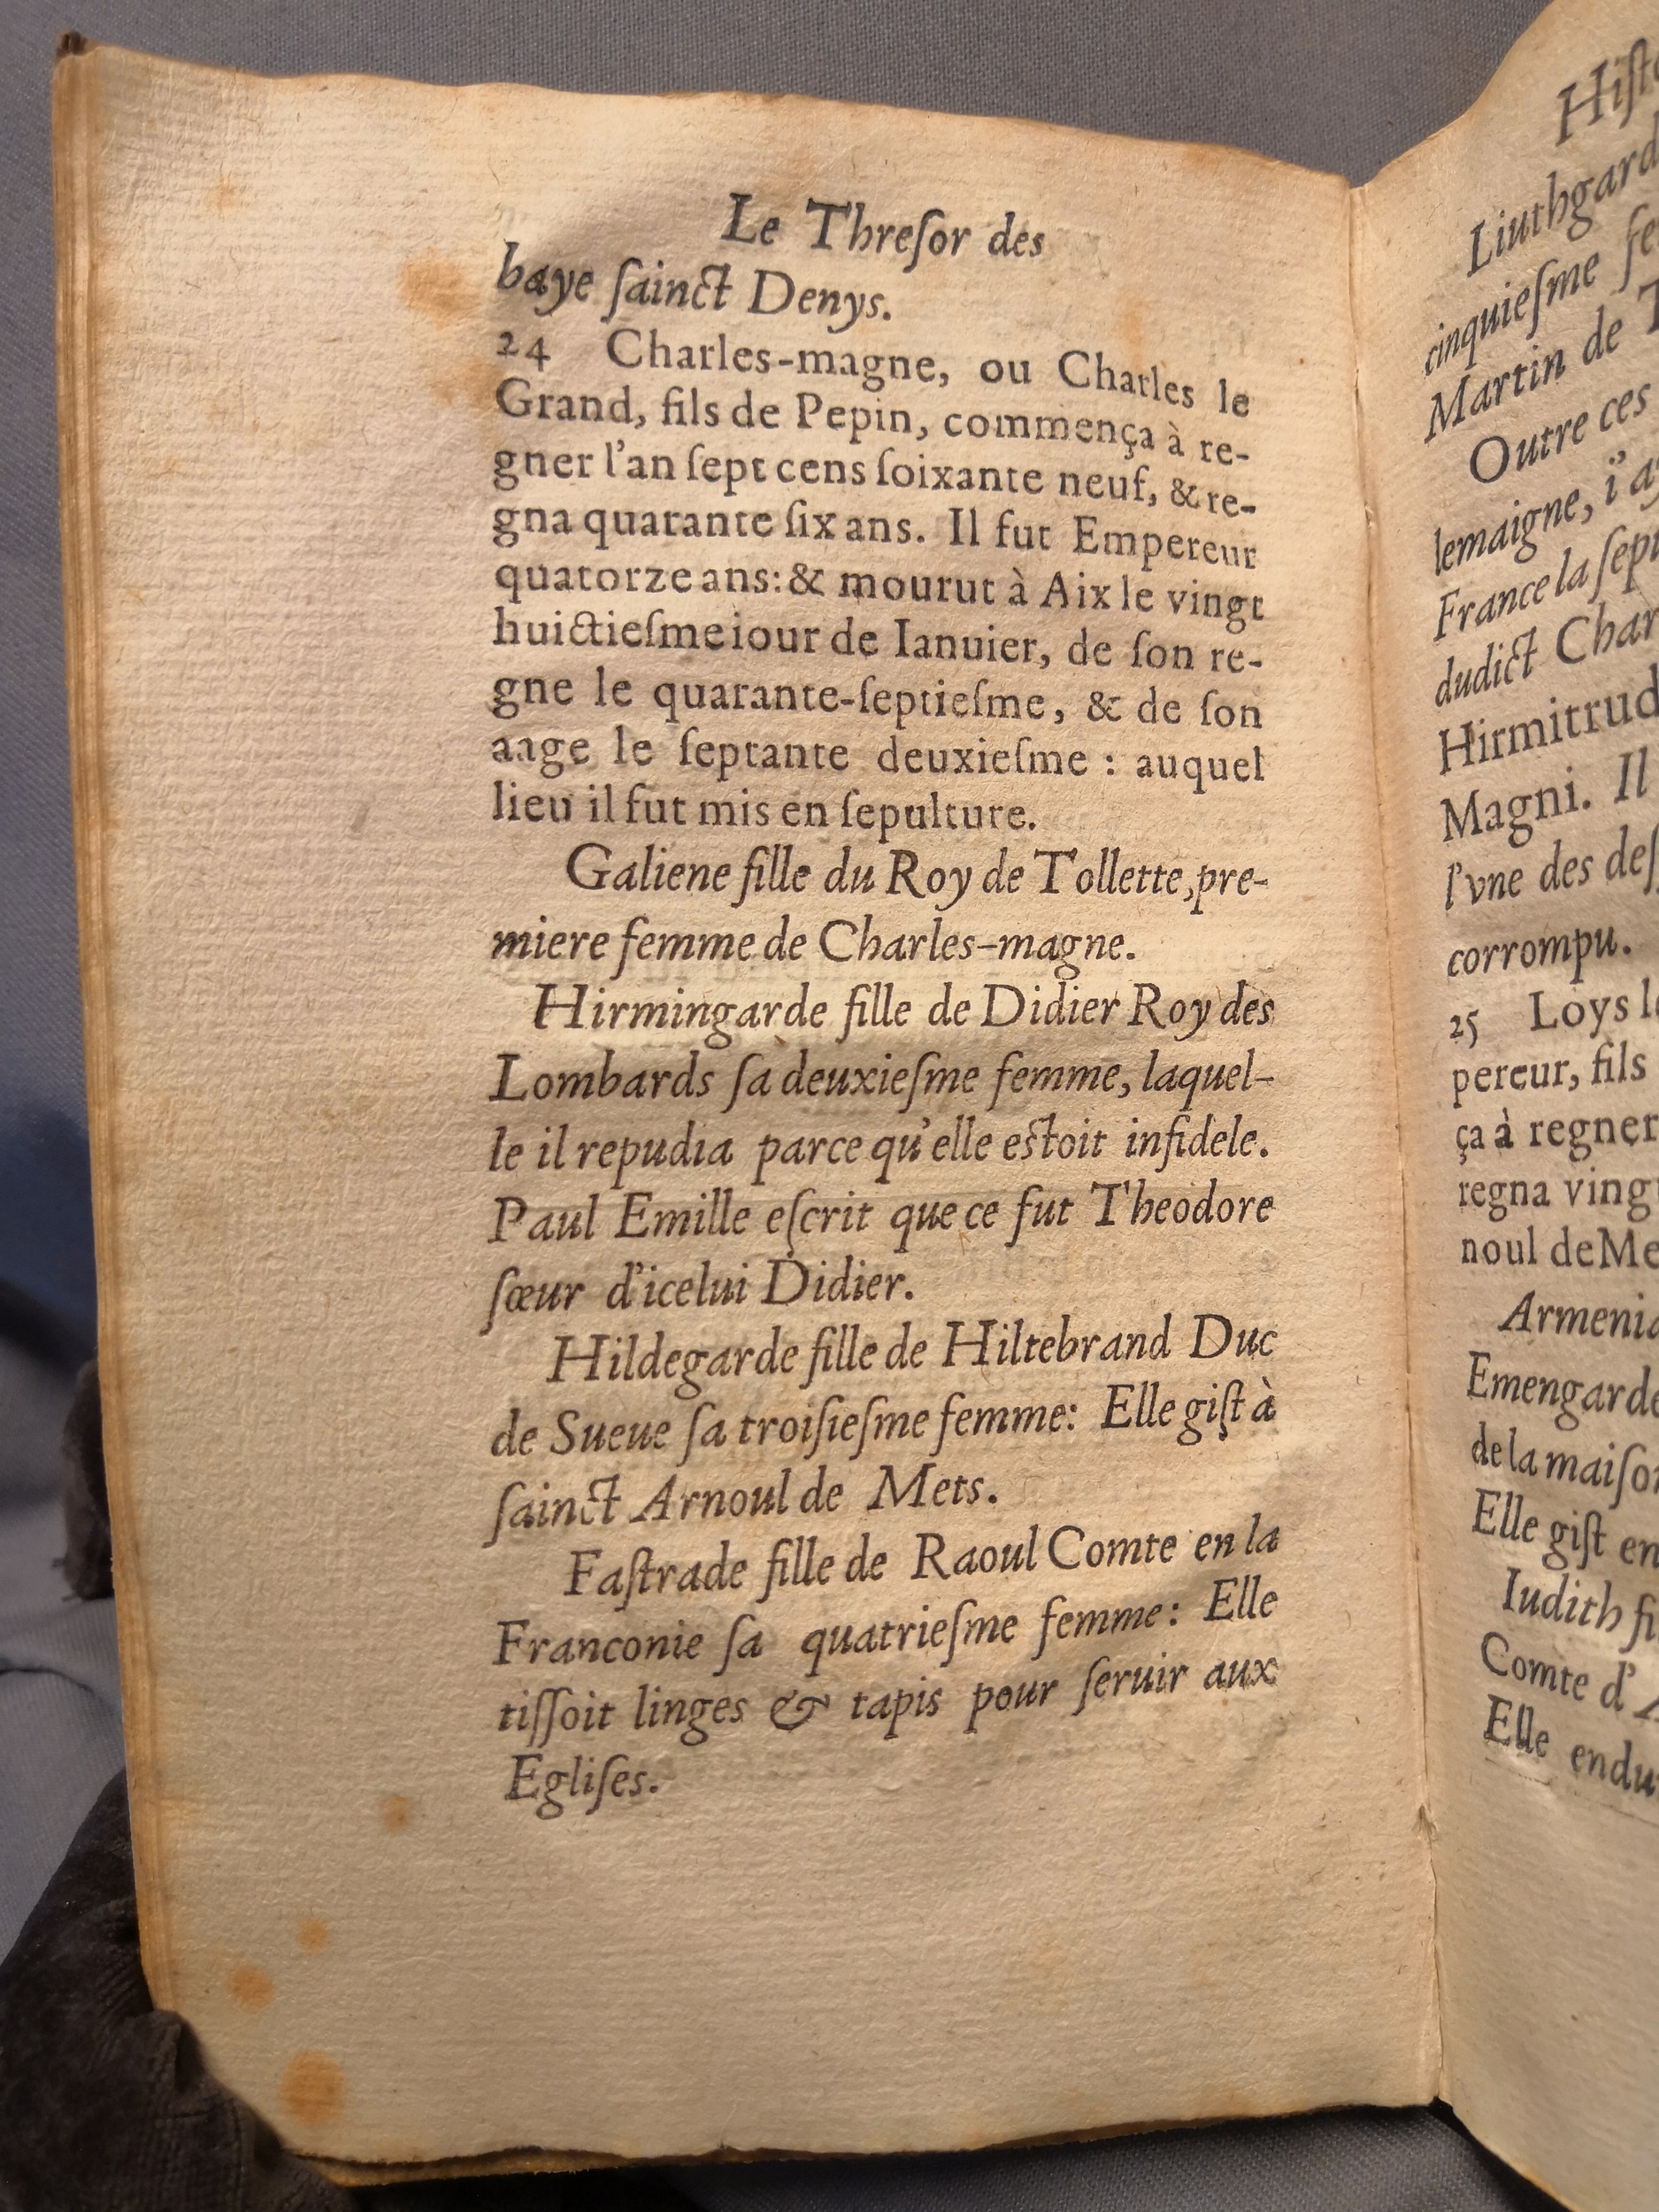 Le Threſor des
baye ſainct Denys.
24 Charles-magne, ou Charles le
Grand, fils de Pepin, commença à re-
gner l'an ſept cens ſoixante neuf, & re-
gna quarante ſix ans. Il fut Empereur
quatorze ans: & mourut à Aix le vingt
huictieſme iour de Ianuier, de ſon re-
gne le quarante-ſeptieſme, & de ſon
aage le ſeptante deuxieſme : auquel
lieu il fut mis en ſepulture.
Galiene fille du Roy de Tollette, pre-
miere femme de Charles-magne.
Hirmingarde fille de Didier Roy des
Lombards ſa deuxieſme femme, laquel-
le il repudia parce qu'elle eſtoit infidele.
Paul Emille eſcrit que ce fut Theodore
ſœur d'icelui Didier.
Hildegarde fille de Hiltebrand Duc
de Sueue ſa troiſieſme femme: Elle giſt à
ſainct Arnoul de Mets.
Faſtrade fille de Raoul Comte en la
Franconie ſa quatrieſme femme: Elle
tiſſoit linges & tapis pour ſeruir aux
Egliſes.
Liuthgard
cinquieſme
Martin de
Outre ces
lemaigne, i'ay
France la ſept
dudict Char
Hirmitrud
Magni. Il
l'vne des deſ
corrompu.
25 Loys le
pereur, fils
ça à regner
regna ving
noul de Me
Armenia
Emengarde
de la maiſon
Elle giſt en
Iudith fi
Comte d'A
Elle endu